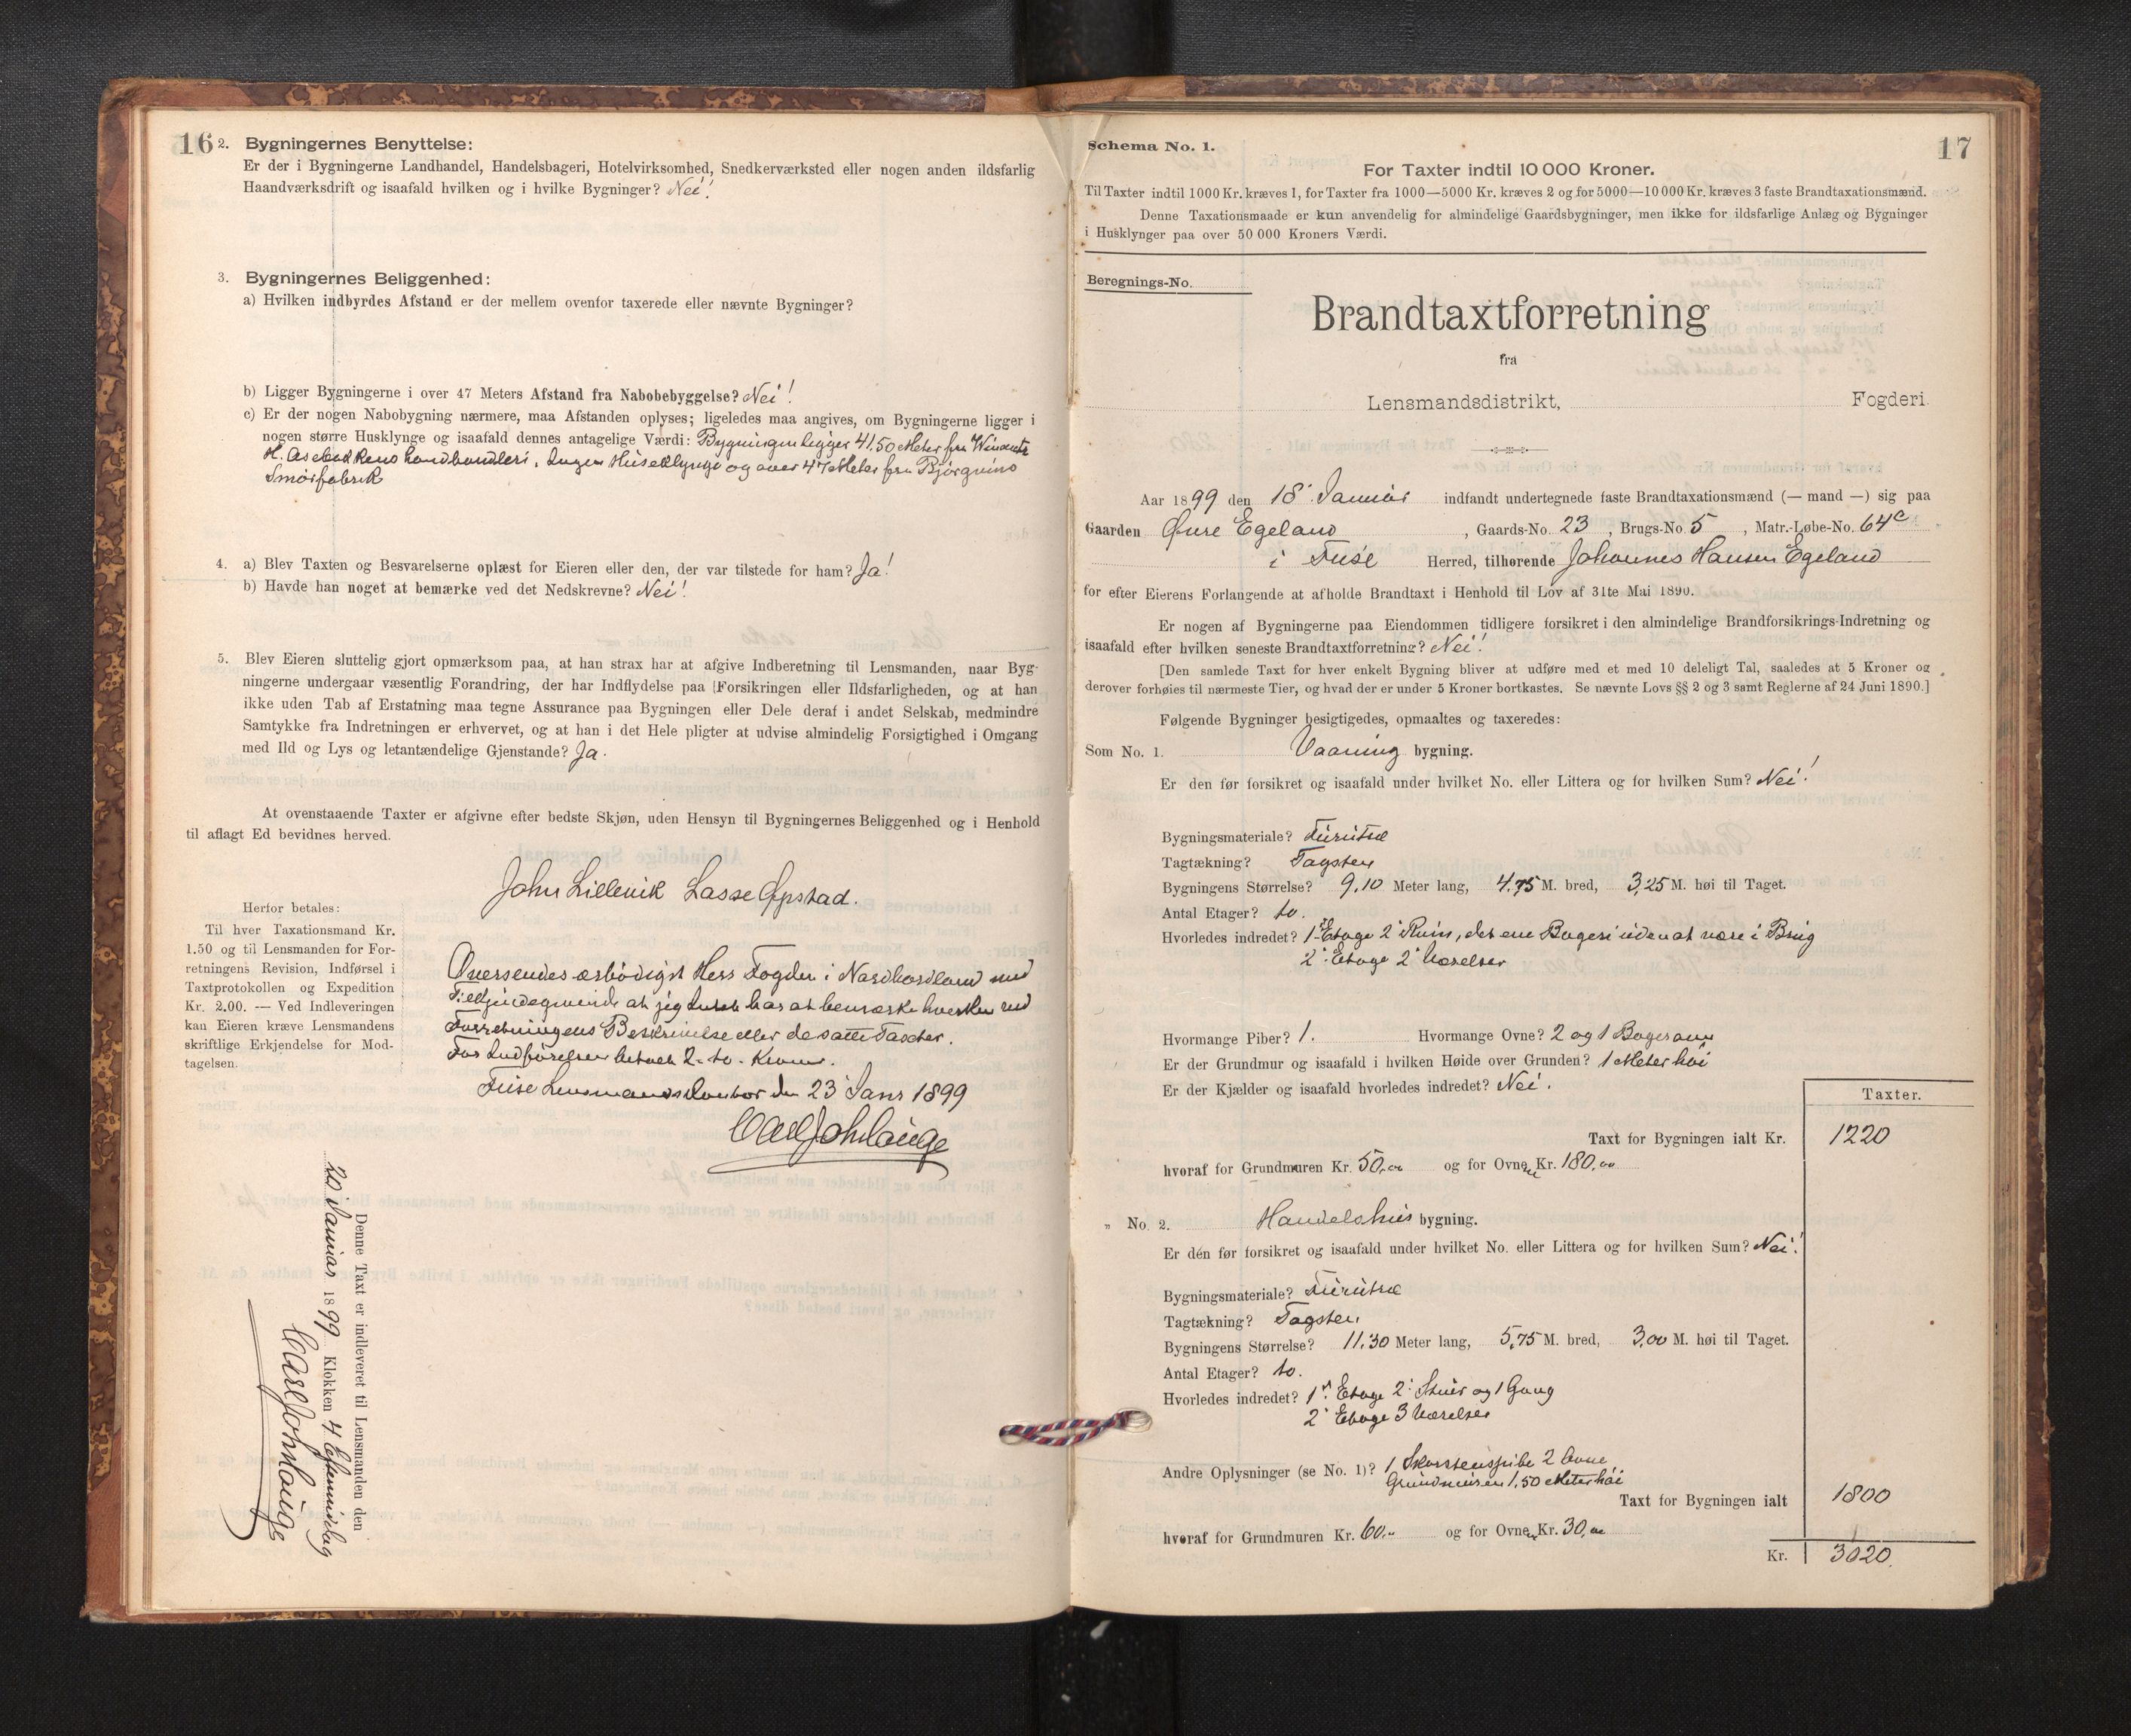 16
2. Bygningernes Benyttelse:
Er der i Bygningerne Landhandel, Handelsbageri, Hotelvirksomhed, Snedkerværksted eller nogen anden ildsfarlig
Haandværksdrift og isaafald hvilken og i hvilke Bygninger? Nei!
3. Bygningernes Beliggenhed:
a) Hvilken indbyrdes Afstand er der mellem ovenfor taxerede eller nævnte Bygninger?
b) Ligger Bygningerne i over 47 Meters Afstand fra Nabobebyggelse? Nei!
c) Er der nogen Nabobygning nærmere, maa Afstanden oplyses; ligeledes maa angives, om Bygningerne ligger i
nogen større Husklynge og isaafald dennes antagelige Værdi: Bygningen ligger 41,50 Meter fra
H. Landhandleri. Ingen Huseklynge og over 47 Meter fra Bjørgvins
Smørfabrik
4. a) Blev Taxten og Besvarelserne oplæst for Eieren eller den, der var tilstede for ham? Ja!
b) Havde han noget at bemærke ved det Nedskrevne? Nei!
5. Blev Eieren sluttelig gjort opmærksom paa, at han strax har at afgive Indberetning til Lensmanden, naar Byg-
ningerne undergaar væsentlig Forandring, der har Indflydelse paa Forsikringen eller Ildsfarligheden, og at han
ikke uden Tab af Erstatning maa tegne Assurance paa Bygningen eller Dele deraf i andet Selskab, medmindre
Samtykke fra Indretningen er erhvervet, og at han i det Hele pligter at udvise almindelig Forsigtighed i Omgang
med Ild og Lys og letantændelige Gjenstande? Ja.
At ovenstaaende Taxter er afgivne efter bedste Skjøn, uden Hensyn til Bygningernes Beliggenhed og i Henhold
til aflagt Ed bevidnes herved.
John Lillevik Lasse Opstad.
Herfor betales:
Til hver Taxationsmand Kr.
1.50 og til Lensmanden for For-
retningens Revision, Indførsel i
Taxtprotokollen og Expedition
Kr. 2.00. — Ved Indleveringen
kan Eieren kræve Lensmandens
skriftlige Erkjendelse for Mod-
tagelsen.
Oversendes ærbødigst Herr Fogden i Nordhordland med
Tilkjendegivende at jeg Intet har at bemærke hverken ved
Forretningens Beskrivelse eller de satte Taxter.
For Indførelsen betalt 2- to - Kroner.
Fuse Lensmandskontor den 23 Janr 1899
Carl Joh Lauge
Denne Taxt er indleveret til Lensmanden den
20 Januar 1899 Klokken 4 Eftermiddag
Carl Joh Lauge
17
Schema No. 1.
For Taxter indtil 10 000 Kroner.
Til Taxter indtil 1000 Kr. kræves 1, for Taxter fra 1000—5000 Kr. kræves 2 og for 5000—10 000 Kr. kræves 3 faste Brandtaxationsmænd.
Denne Taxationsmaade er kun anvendelig for almindelige Gaardsbygninger, men ikke for ildsfarlige Anlæg og Bygninger
i Husklynger paa over 50 000 Kroners Værdi.
Beregnings-No.
Brandtaxtforretning
fra
Lensmandsdistrikt, Fogderi.
Aar 1899 den 18' Januar indfandt undertegnede faste Brandtaxationsmænd (— mand —) sig paa
Gaarden Øvre Egeland, Gaards-No. 23, Brugs-No. 5, Matr.-Løbe-No. 64c
i Fuse Herred, tilhørende Johannes Hansen Egeland
for efter Eierens Forlangende at afholde Brandtaxt i Henhold til Lov af 31te Mai 1890.
Er nogen af Bygningerne paa Eiendommen tidligere forsikret i den almindelige Brandforsikrings-Indretning og
isaafald efter hvilken seneste Brandtaxtforretning? Nei!
[Den samlede Taxt for hver enkelt Bygning bliver at udføre med et med 10 deleligt Tal, saaledes at 5 Kroner og
derover forhøies til nærmeste Tier, og hvad der er under 5 Kroner bortkastes. Se nævnte Lovs §§ 2 og 3 samt Reglerne af 24 Juni 1890.]
Følgende Bygninger besigtigedes, opmaaltes og taxeredes:
Som No. 1. Vaaning bygning.
Er den før forsikret og isaafald under hvilket No. eller Littera og for hvilken Sum? Nei!
Bygningsmateriale? Furutræ
Tagtækning? Tagsten
Bygningens Størrelse? 9,10 Meter lang, 4,75 M. bred, 3,25 M. høi til Taget.
Antal Etager? to.
Hvorledes indredet? 1ste Etage 2 Rum, det ene Bageri uden at være i Brug
2' Etage 2 Værelser
Hvormange Piber? 1. Hvormange Ovne? 2 og 1 Bagerovn
Er der Grundmur og isaafald i hvilken Høide over Grunden? 1 Meter høi
Er der Kjælder og isaafald hvorledes indredet? Nei.
Taxter.
Taxt for Bygningen ialt Kr. 1220
hvoraf for Grundmuren Kr. 50,00 og for Ovnene Kr. 180,00
„ No. 2. Handelshus bygning.
Er dén før forsikret og isaafald under hvilket No. eller Littera og for hvilken Sum? Nei!
Bygningsmateriale? Furutræ
Tagtækning? Tagsten
Bygningens Størrelse? 11,30 Meter lang, 5,75 M. bred, 3,00 M. høi til Taget.
Antal Etager? to.
Hvorledes indredet? 1ste Etage 2 Stuer og 1 Gang
2' Etage 3 Værelser
Andre Oplysninger (se No. 1)? 1 Skorstenspibe 2 Ovne
Grundmuren 1,50 Meter høi
Taxt for Bygningen ialt 1800
hvoraf for Grundmuren Kr. 60.- og for Ovnen Kr. 30,00
Kr. 3020.